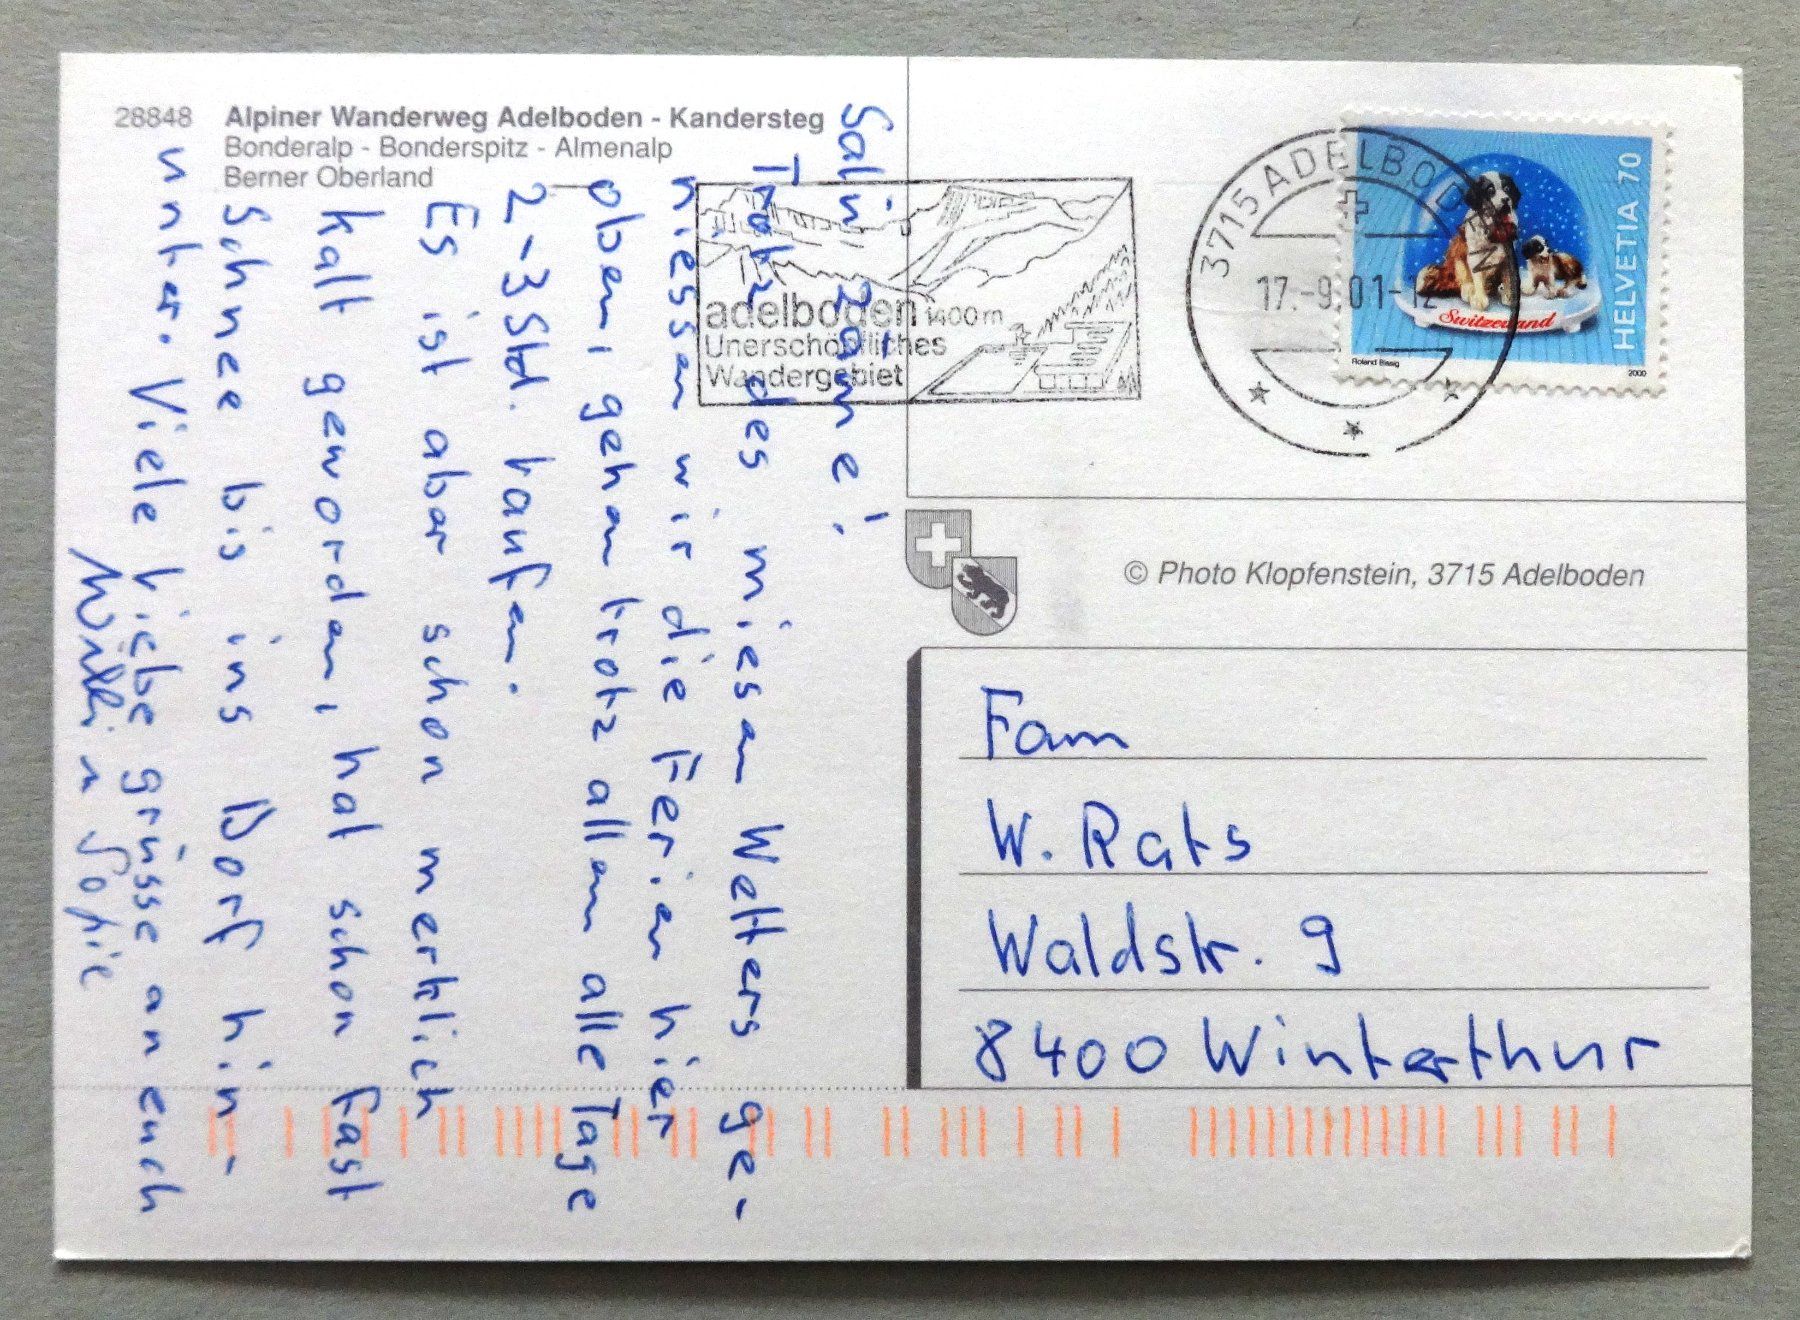 28848 Alpiner Wanderweg Adelboden - Kandersteg
Bonderalp - Bonderspitz - Almenalp
Berner Oberland
Salü zäme!
Trotz des miesen Wetters ge-
niessen wir die Ferien hier
oben, gehen trotz allem alle Tage
2-3 Std. laufen.
Es ist aber schon merklich
kalt geworden, hat schon fast
Schnee bis ins Dorf hin-
unter. Viele liebe grüsse an euch
Willi u Sofie
adelboden 1400 m
Unerschöpfliches
Wandergebiet
3715 ADELBODEN
17.-9.01-12
HELVETIA 70
Switzerland
Roland Bissig
2000
© Photo Klopfenstein, 3715 Adelboden
Fam
W. Rats
Waldstr. 9
8400 Winterthur